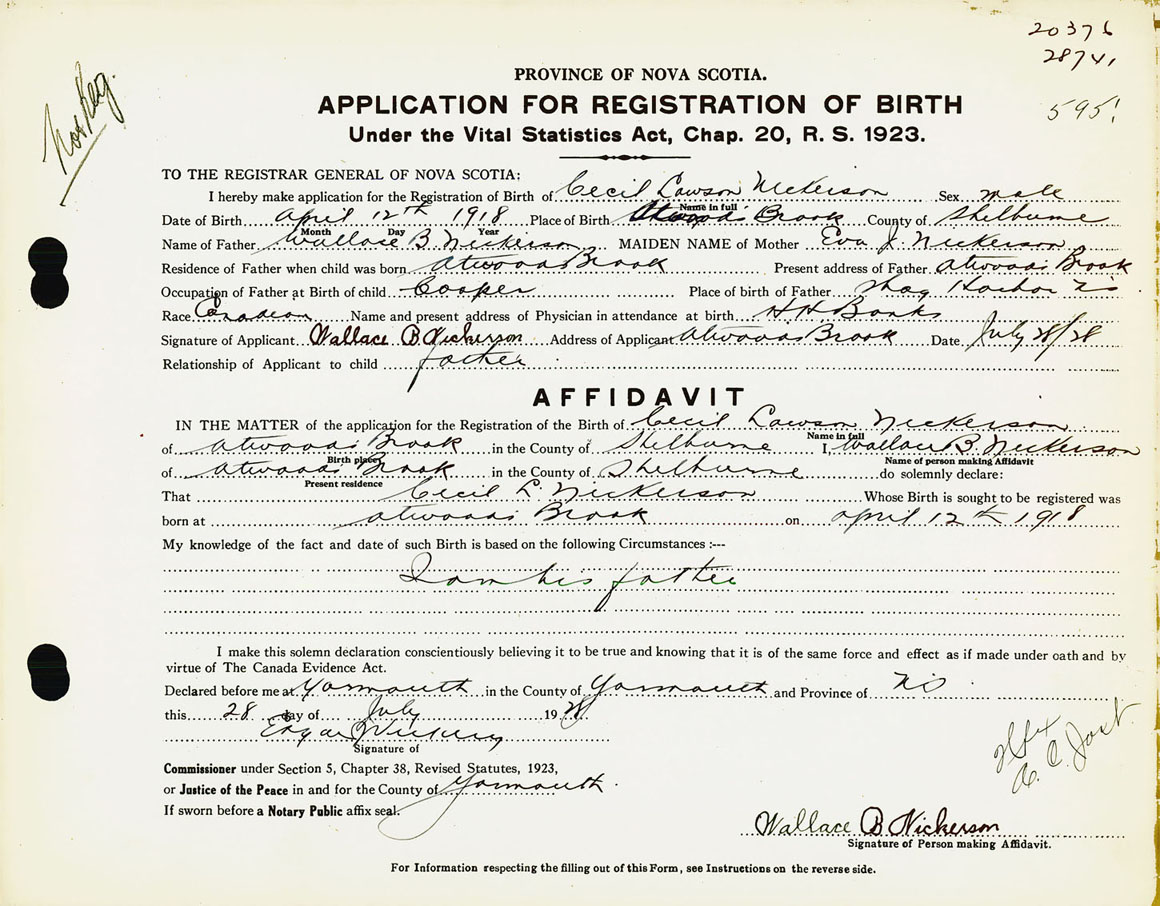 20376
28741
5951
Not Reg.
PROVINCE OF NOVA SCOTIA.
APPLICATION FOR REGISTRATION OF BIRTH
Under the Vital Statistics Act, Chap. 20, R. S. 1923.
TO THE REGISTRAR GENERAL OF NOVA SCOTIA:
I hereby make application for the Registration of Birth of Cecil Lawson Nickerson Sex male
Name in full
Date of Birth April 12th 1918 Place of Birth Atwoods Brook County of Shelburne
Month Day Year
Name of Father Wallace B. Nickerson MAIDEN NAME of Mother Eva J. Nickerson
Residence of Father when child was born Atwoods Brook Present address of Father Atwoods Brook
Occupation of Father at Birth of child Cooper Place of birth of Father Shag Harbor NS
Race Canadian Name and present address of Physician in attendance at birth H H Banks
Signature of Applicant Wallace B Nickerson Address of Applicant Atwoods Brook Date July 28/28
Relationship of Applicant to child father
AFFIDAVIT
IN THE MATTER of the application for the Registration of the Birth of Cecil Lawson Nickerson
Name in full
of Atwoods Brook in the County of Shelburne I, Wallace B. Nickerson
Birth place Name of person making Affidavit
of Atwoods Brook in the County of Shelburne do solemnly declare:
Present residence
That Cecil L. Nickerson Whose Birth is sought to be registered was
born at Atwoods Brook on April 12th 1918
My knowledge of the fact and date of such Birth is based on the following Circumstances :---
I am his father
I make this solemn declaration conscientiously believing it to be true and knowing that it is of the same force and effect as if made under oath and by
virtue of The Canada Evidence Act.
Declared before me at Yarmouth in the County of Yarmouth and Province of NS
this 28 day of July 1928
Edgar
Signature of
Commissioner under Section 5, Chapter 38, Revised Statutes, 1923,
or Justice of the Peace in and for the County of Yarmouth.
If sworn before a Notary Public affix seal.
A. C. Jost
Wallace B Nickerson
Signature of Person making Affidavit.
For Information respecting the filling out of this Form, see Instructions on the reverse side.